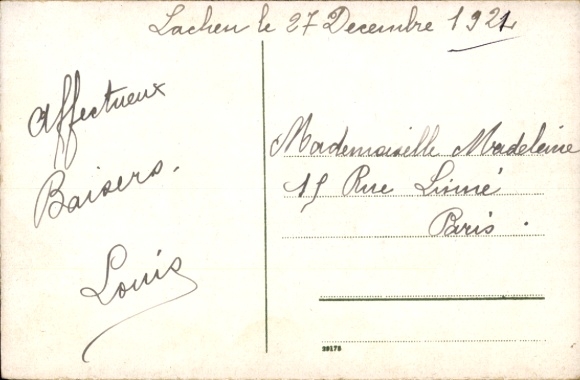 Lachen le 27 Decembre 1921
Affectueux
Baisers.
Louis
Mademoiselle Madeleine
15 Rue Linné
Paris.
29175